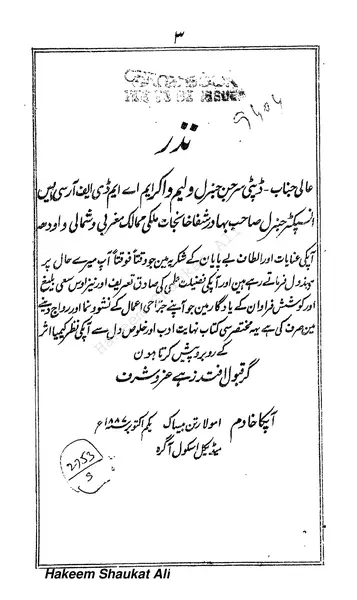 ۳
CHECKED BOOK
NOT TO BE ISSUED
9404
نذر
عالی جناب - ڈپٹی سرجن جنرل ولیم واکر ایم اے ایم ڈی ایف آر سی ایس
انسپکٹر جنرل صاحب بہادر شفاخانجات ملکی ممالک مغربی و شمالی و اودھ
آپکی عنایات اور الطاف بے پایان کے شکریہ مین جو وقتاً فوقتاً آپ میرے حال پر
مبذول فرماتے رہے ہین اور آپکی فضیلت علمی کی صادق تعریف اور نیز اوس سعی بلیغ
اور کوشش فراوان کے یادگار مین جو آپنے جراحی اعمال کے نشوونما اور رواج دینے
مین صرف کی ہے یہ مختصر سی کتاب نہایت ادب اور خلوص دل سے آپکی نظر کیمیا اثر
کے روبرو پیش کرتا ہون
گر قبول افتد زہے عز و شرف
آپکا خادم امولا رتن بیساک یکم اکتوبر ۱۸۸۷ء
میڈیکل اسکول آگرہ
2753
5
Hakeem Shaukat Ali